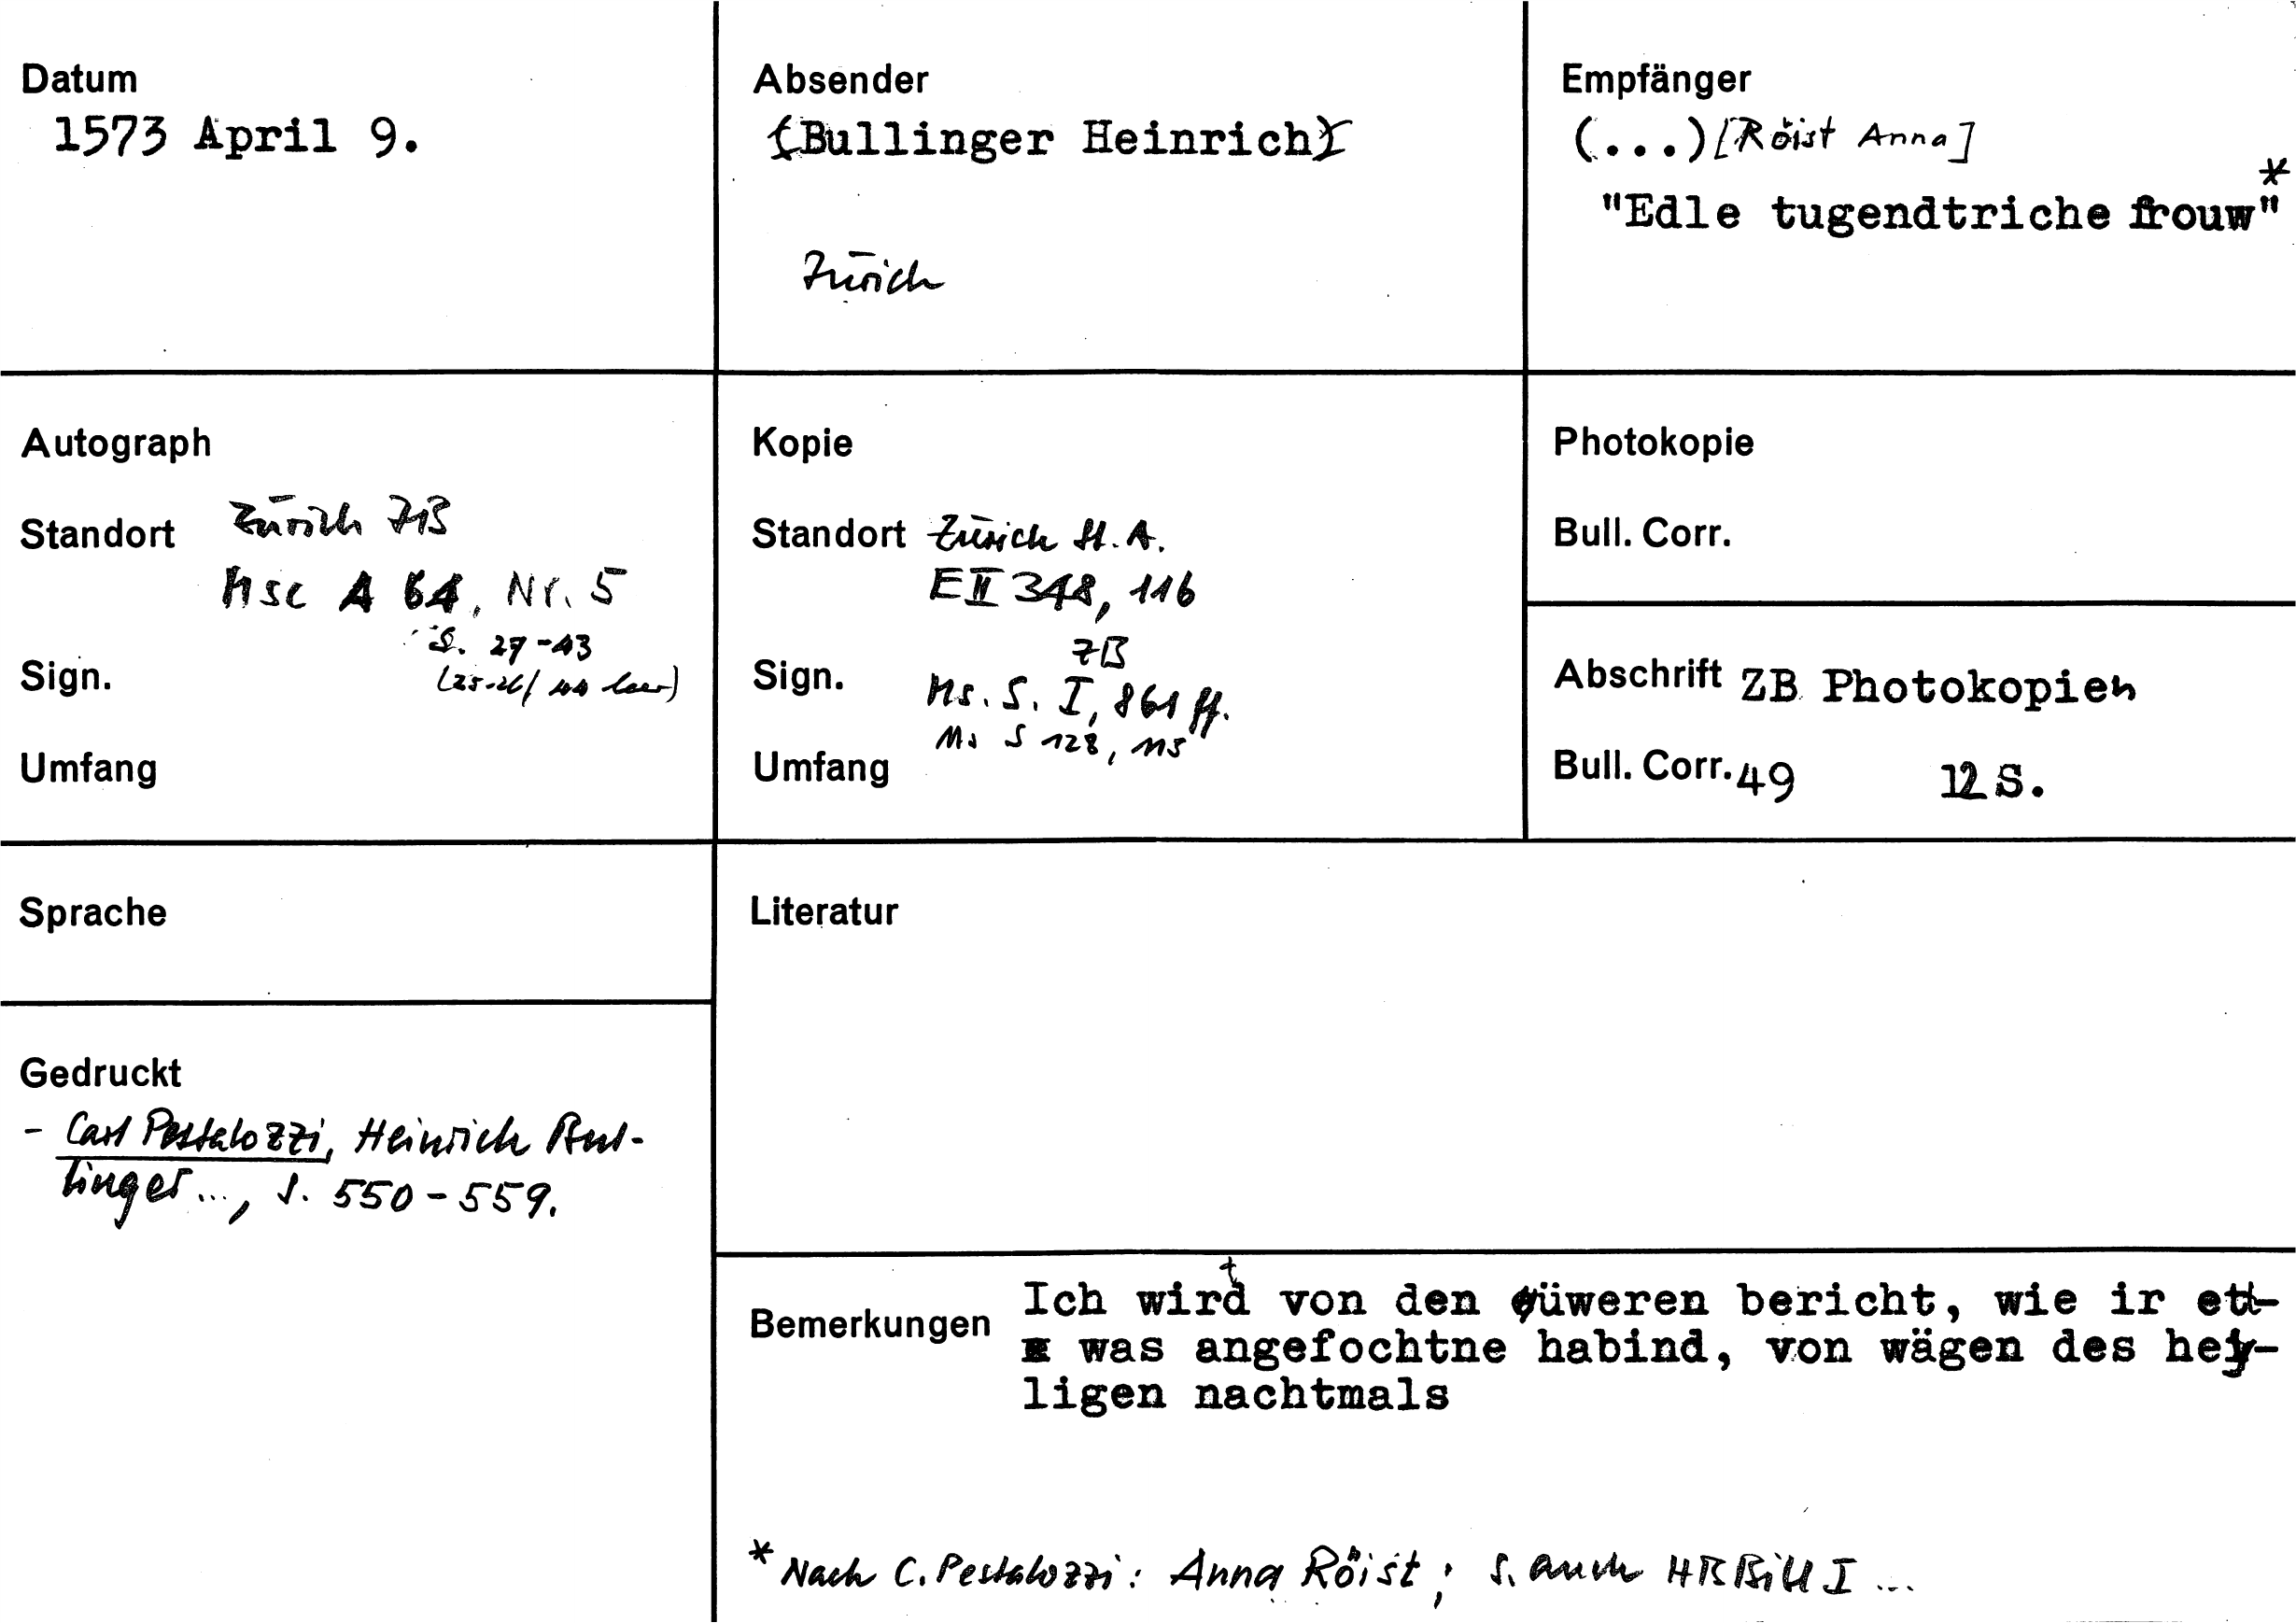 Datum
1573 April 9.
Absender
(Bullinger Heinrich)
Zürich
Empfänger
(...) [Röist Anna]
"Edle tugendtriche frouw"*
Autograph
Standort Zürich ZB
Msc A 64, Nr. 5
S. 27-43
Sign. (25-26/44 leer)
Umfang
Kopie
Standort Zürich St. A.
E II 348, 116
ZB
Sign. Ms. S. I, 861 ff.
Ms S 128, 115
Umfang
Photokopie
Bull. Corr.
Abschrift ZB Photokopien
Bull. Corr. 49 12 S.
Sprache
Literatur
Gedruckt
- Carl Pestalozzi, Heinrich Bul-
linger ..., S. 550-559.
Bemerkungen Ich wirdt von den üweren bericht, wie ir ett-
was angefochtne habind, von wägen des hey-
ligen nachtmals
* Nach C. Pestalozzi: Anna Röist; s. auch HBBibl I ...